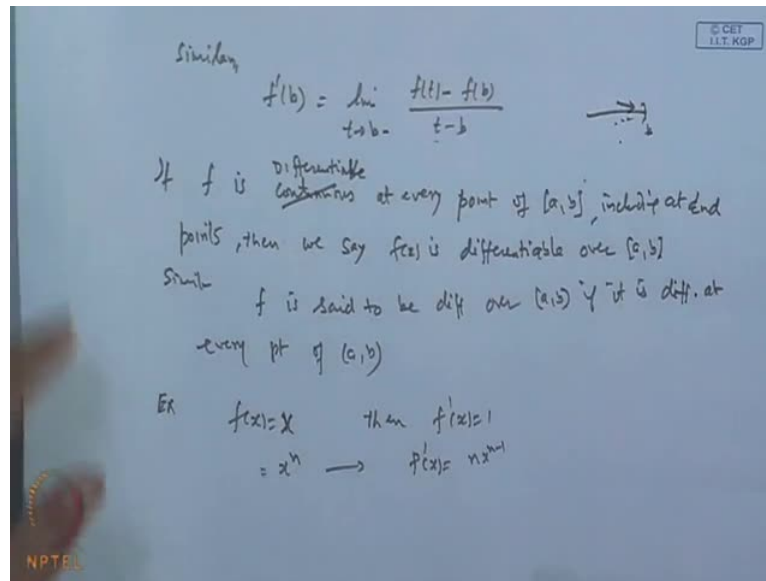 © CET
I.I.T. KGP
Similarly
f'(b) = lim_{t→b-} \frac{f(t) - f(b)}{t - b}
b
Differentiable
If f is ~~continuous~~ at every point of [a,b], including at End
points, then we say f(x) is differentiable over [a,b]
Simil
f is said to be diff over (a,b) if it is diff. at
every pt of (a,b)
Ex f(x) = x then f'(x) = 1
= x^n → f'(x) = nx^{n-1}
NPTEL